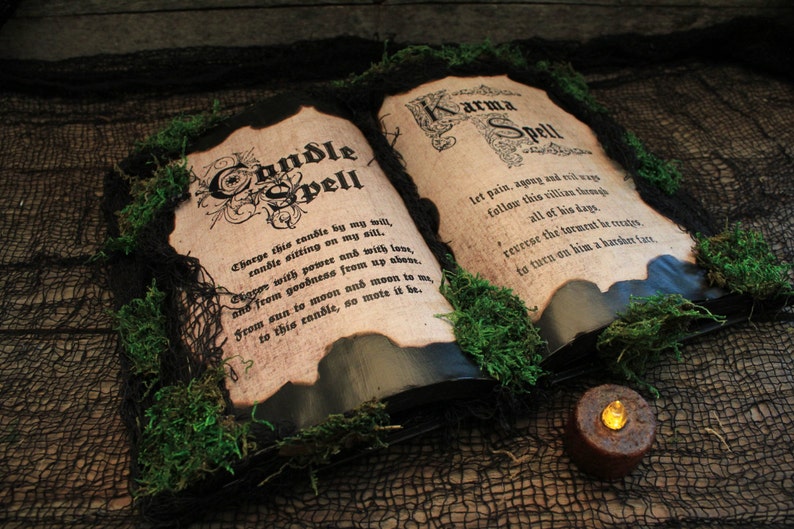 Candle
Spell
Charge this candle by my will,
candle sitting on my sill.
with power and with love,
and from goodness from up above.
From sun to moon and moon to me,
to this candle, so mote it be.
Karma
Spell
let pain, agony and evil ways
follow this villian through
all of his days,
reverse the torment he creates,
to turn on him a harsher fate.